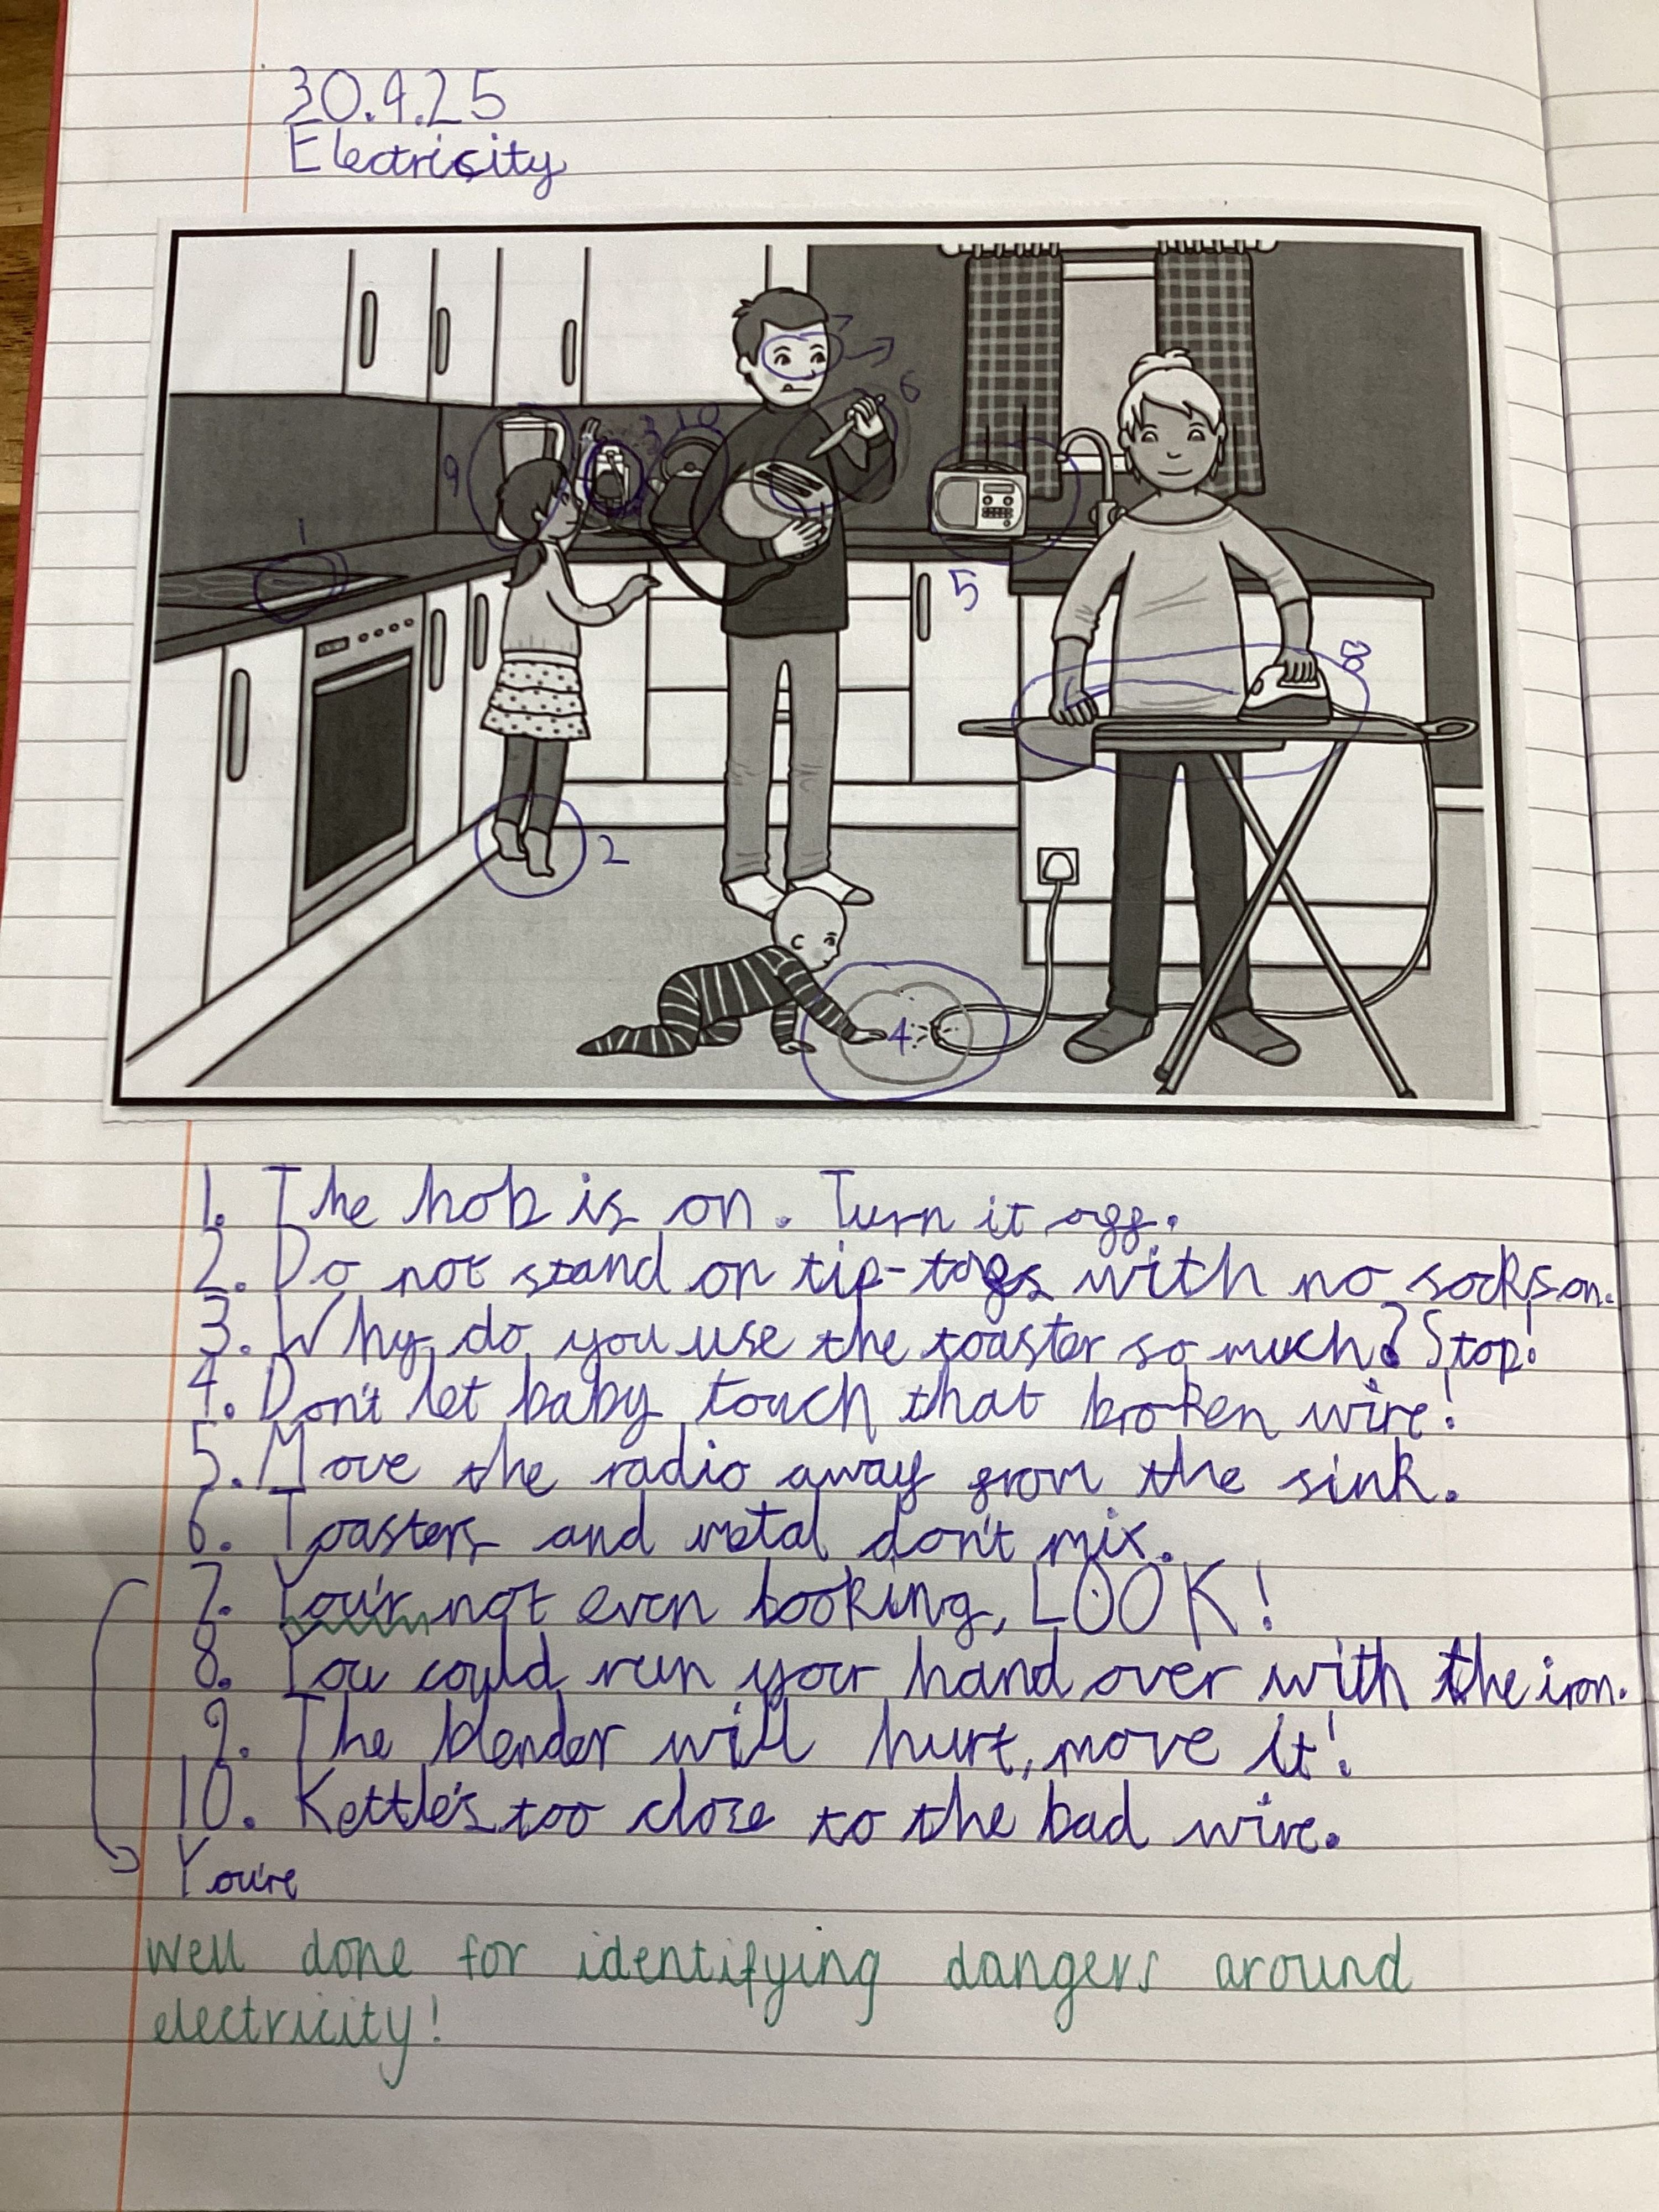 30.9.25
Electricity
7
6
3
10
9
1
5
8
2
4
1. The hob is on. Turn it off.
2. Do not stand on tip-toes with no socks on.
3. Why do you use the toaster so much? Stop!
4. Don't let baby touch that broken wire!
5. Move the radio away from the sink.
6. Toasters and metal don't mix.
7. You'r not even looking, LOOK!
8. You could run your hand over with the iron.
9. The blender will hurt, move it!
10. Kettle's too close to the bad wire.
You're
Well done for identifying dangers around
electricity!